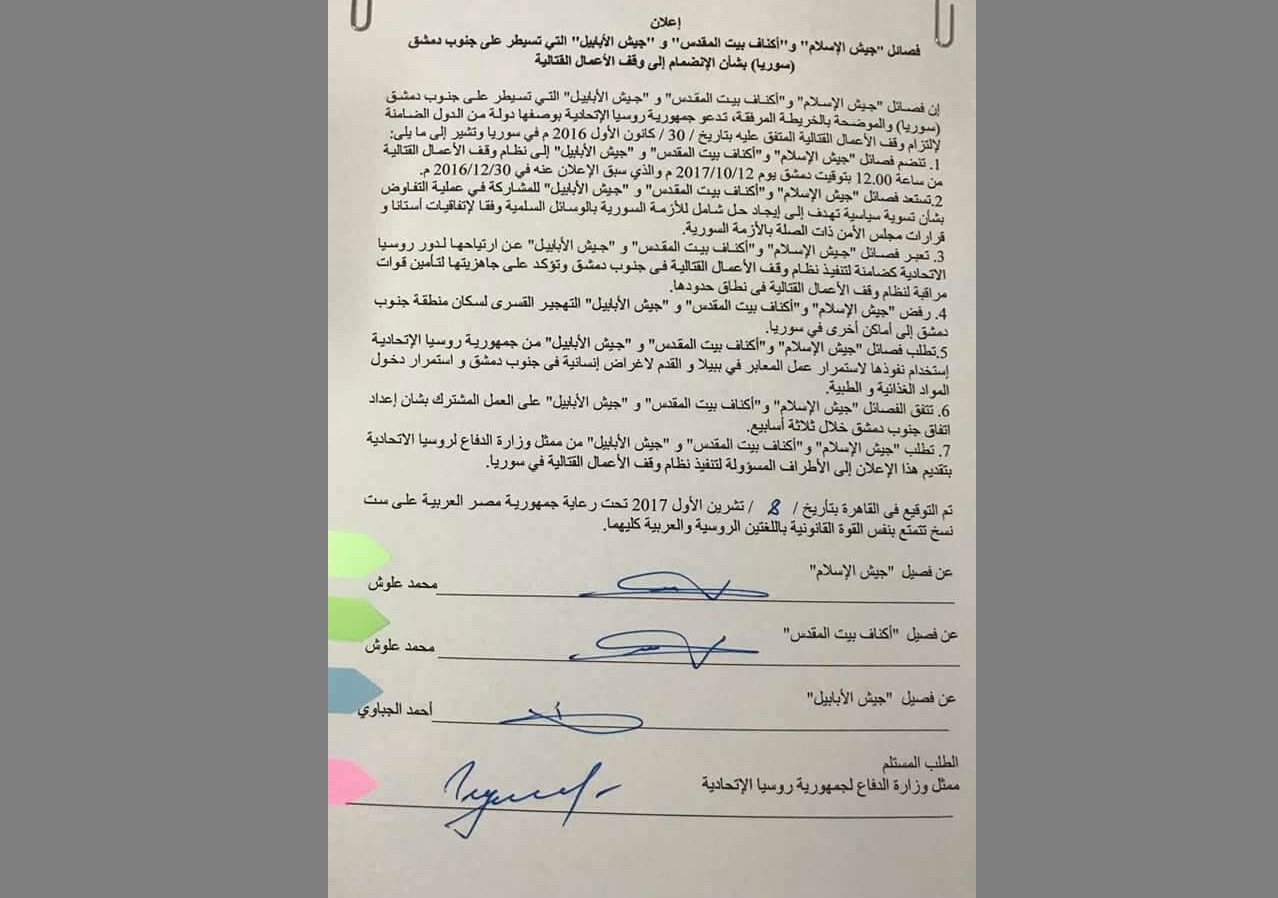 إعلان
فصائل "جيش الإسلام" و"أكناف بيت المقدس" و "جيش الأبابيل" التي تسيطر على جنوب دمشق
(سوريا) بشأن الإنضمام إلى وقف الأعمال القتالية
إن فصائل "جيش الإسلام" و"أكناف بيت المقدس" و "جيش الأبابيل" التي تسيطر على جنوب دمشق
(سوريا) والموضحة بالخريطة المرفقة، تدعو جمهورية روسيا الإتحادية بوصفها دولة من الدول الضامنة
لإلتزام وقف الأعمال القتالية المتفق عليه بتاريخ / 30 / كانون الأول 2016 م في سوريا وتشير إلى ما يلى:
1. تنضم فصائل "جيش الإسلام" و"أكناف بيت المقدس" و "جيش الأبابيل" إلى نظام وقف الأعمال القتالية
من ساعة 12.00 بتوقيت دمشق يوم 2017/10/12 م والذي سبق الإعلان عنه في 2016/12/30 م.
2.تستعد فصائل "جيش الإسلام" و"أكناف بيت المقدس" و "جيش الأبابيل" للمشاركة في عملية التفاوض
بشأن تسوية سياسية تهدف إلى إيجاد حل شامل للأزمة السورية بالوسائل السلمية وفقا لإتفاقيات أستانا و
قرارات مجلس الأمن ذات الصلة بالأزمة السورية.
3. تعبر فصائل "جيش الإسلام" و"أكناف بيت المقدس" و "جيش الأبابيل" عن ارتياحها لدور روسيا
الاتحادية كضامنة لتنفيذ نظام وقف الأعمال القتالية فى جنوب دمشق وتؤكد على جاهزيتها لتأمين قوات
مراقبة لنظام وقف الأعمال القتالية فى نطاق حدودها.
4. رفض "جيش الإسلام" و"أكناف بيت المقدس" و "جيش الأبابيل" التهجير القسرى لسكان منطقة جنوب
دمشق إلى أماكن أخرى في سوريا.
5.تطلب فصائل "جيش الإسلام" و"أكناف بيت المقدس" و "جيش الأبابيل" من جمهورية روسيا الإتحادية
إستخدام نفوذها لاستمرار عمل المعابر في ببيلا و القدم لاغراض إنسانية فى جنوب دمشق و استمرار دخول
المواد الغذائية و الطبية.
6. تتفق الفصائل "جيش الإسلام" و"أكناف بيت المقدس" و "جيش الأبابيل" على العمل المشترك بشان إعداد
اتفاق جنوب دمشق خلال ثلاثة أسابيع.
7. تطلب "جيش الإسلام" و"أكناف بيت المقدس" و "جيش الأبابيل" من ممثل وزارة الدفاع لروسيا الاتحادية
بتقديم هذا الإعلان إلى الأطراف المسؤولة لتنفيذ نظام وقف الأعمال القتالية في سوريا.
تم التوقيع فى القاهرة بتأريخ / 8 / تشرين الأول 2017 تحت رعاية جمهورية مصر العربية على ست
نسخ تتمتع بنفس القوة القانونية باللغتين الروسية والعربية كليهما.
عن فصيل "جيش الإسلام" محمد علوش
عن فصيل "أكناف بيت المقدس" محمد علوش
عن فصيل "جيش الأبابيل" أحمد الجباوي
الطلب المستلم
ممثل وزارة الدفاع لجمهورية روسيا الإتحادية